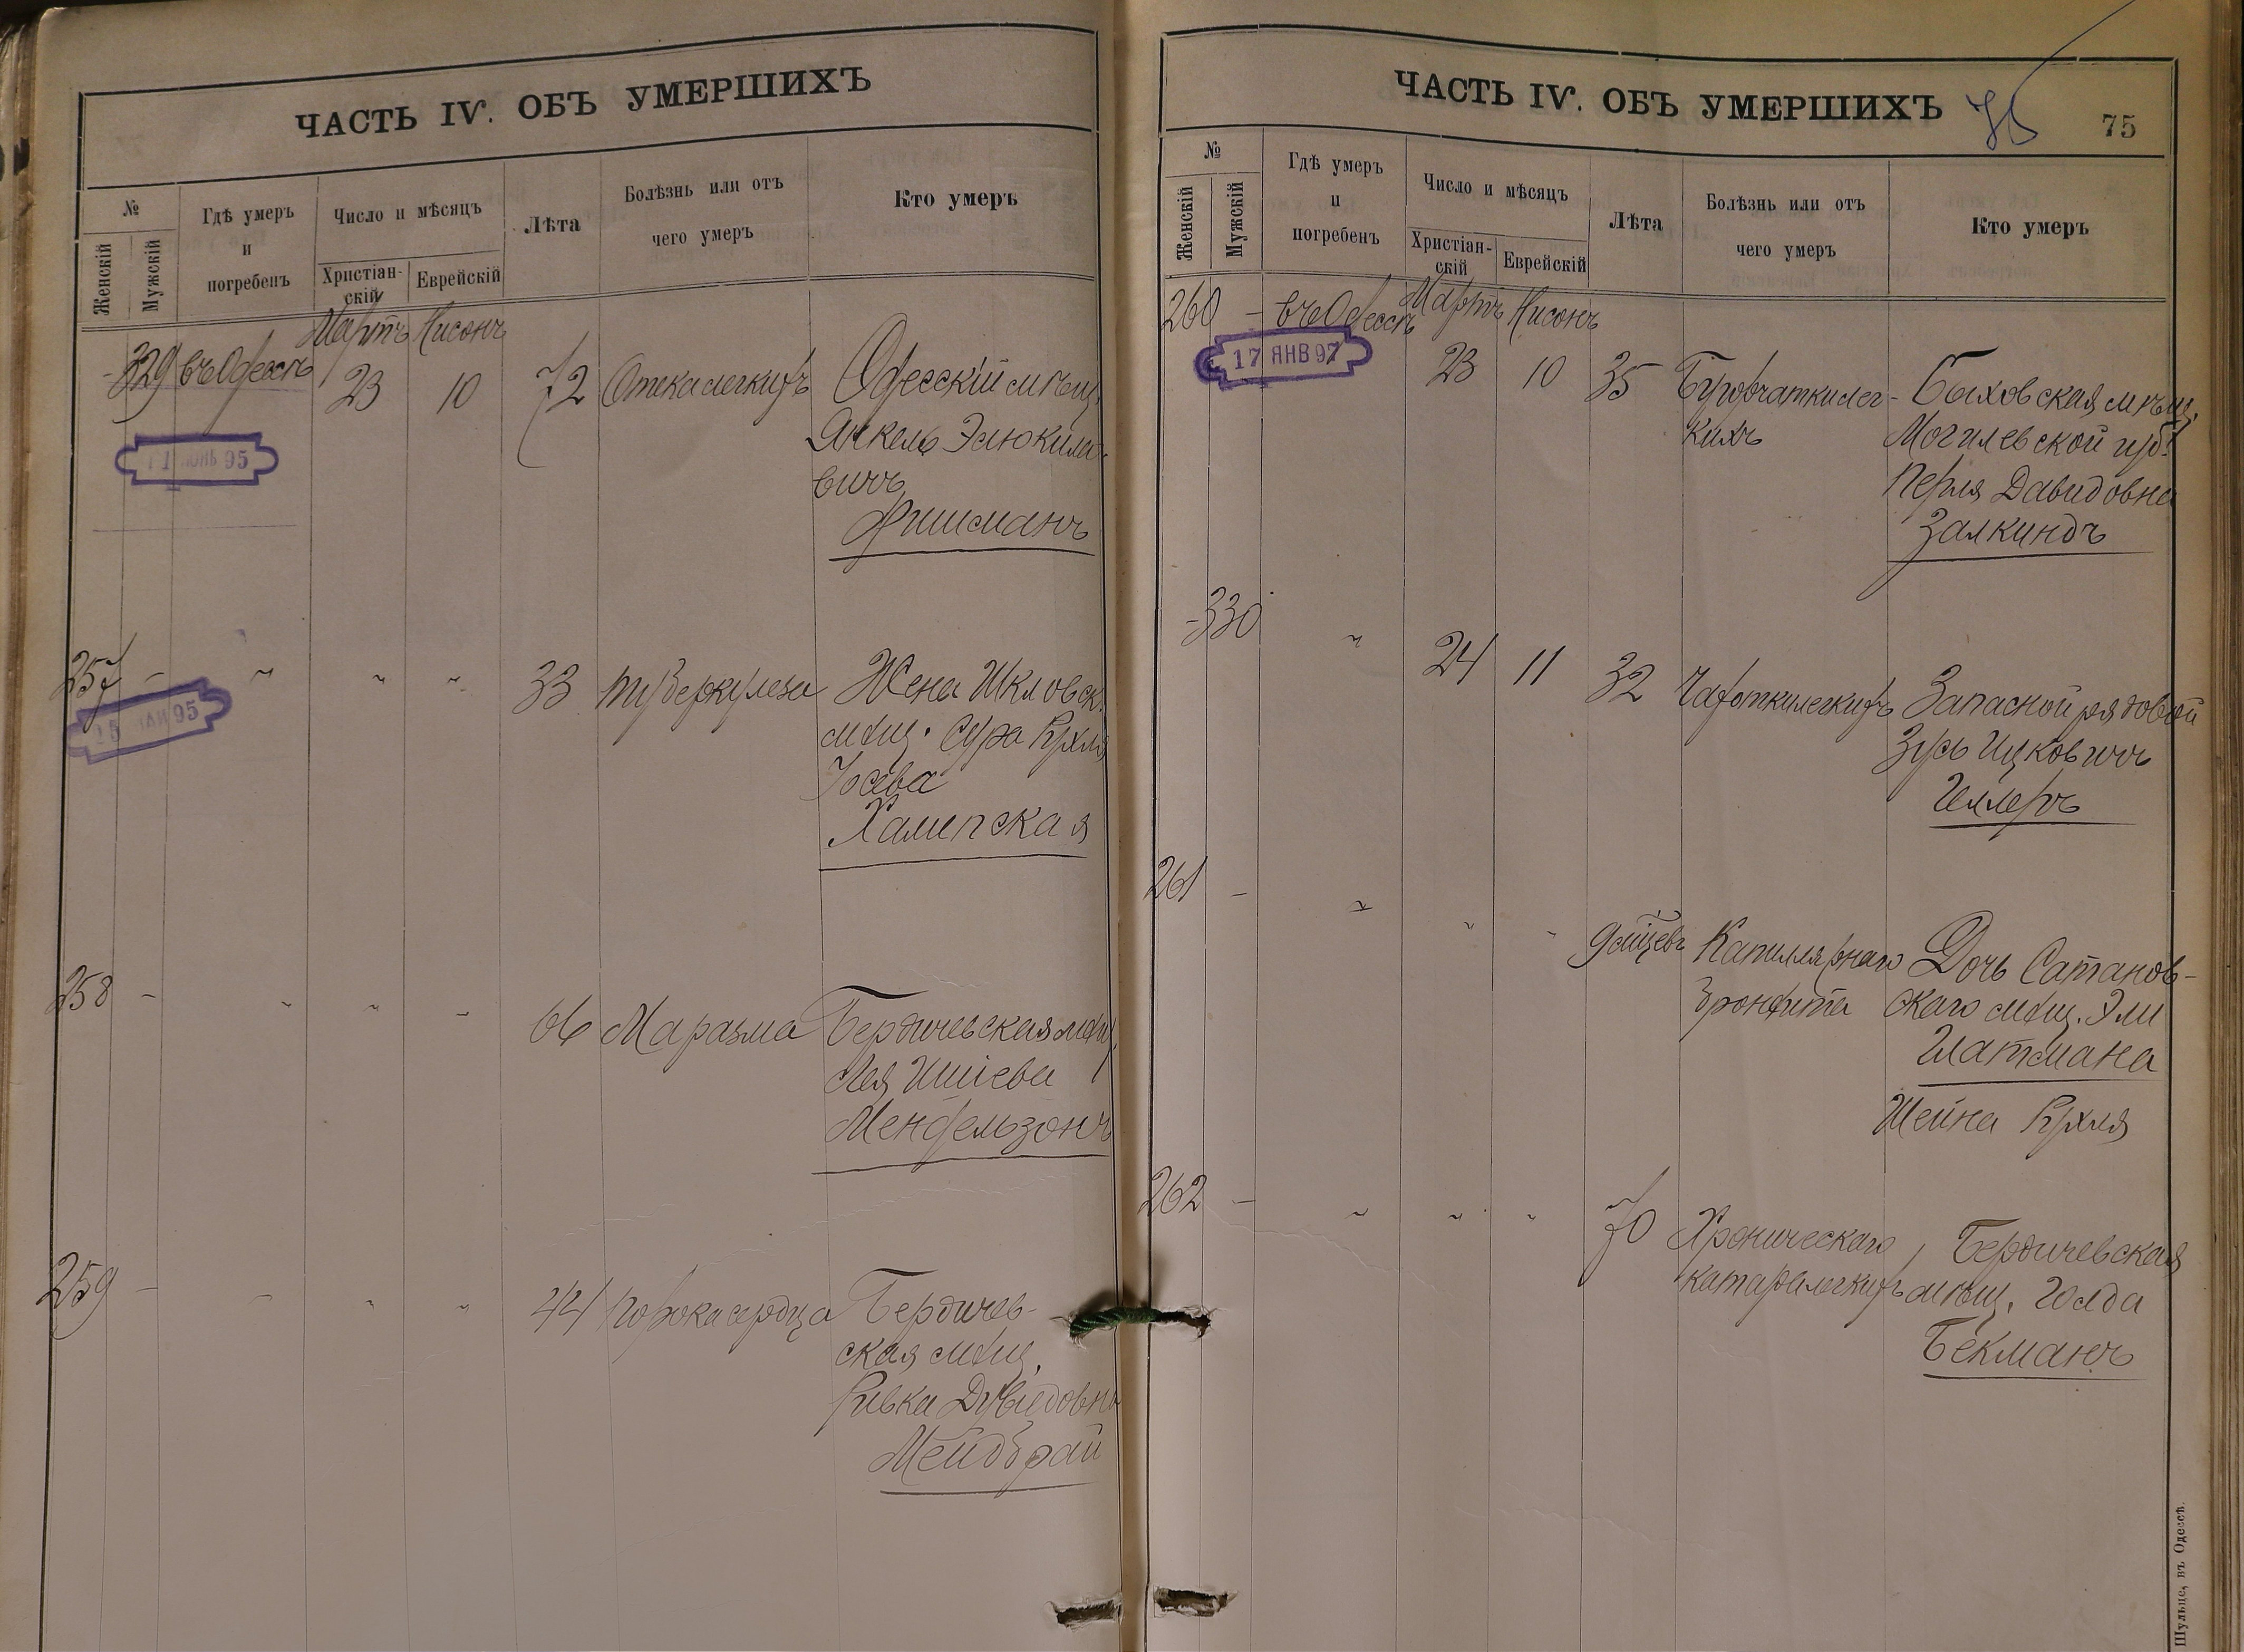 ЧАСТЬ IV. ОБЪ УМЕРШИХЪ
№
Женскій
Мужскій
Гдѣ умеръ
и
погребенъ
Число и мѣсяцъ
Христіан-
скій
Еврейскій
Лѣта
Болѣзнь или отъ
чего умеръ
Кто умеръ
Мартъ Нисонъ
- 329 въ Одессѣ 23 10 72 Отека легкихъ Одесскій мѣщ.
Янкель
вичъ
Фишманъ
11 ІЮНЬ 95
257 - " " " 33 туберкулеза Жена Шкловск.
мѣщ. Сура Рухля
Іосева
Халипская
95
258 - " " " 66 Маразма Бердичевская мѣщ.
Лея
Мендельзонъ
259 - " " " 44 порока сердца Бердичев-
ская мѣщ.
Ривка Дувидовна
Мейдбрай
ЧАСТЬ IV. ОБЪ УМЕРШИХЪ
75
75
№
Женскій
Мужскій
Гдѣ умеръ
и
погребенъ
Число и мѣсяцъ
Христіан-
скій
Еврейскій
Лѣта
Болѣзнь или отъ
чего умеръ
Кто умеръ
260 - въ Одессѣ Мартъ Нисонъ
17 ЯНВ 97
23 10 35 Бугорчатки лег- Быховская мѣщ.
кихъ Могилевской губ.
Перля Давидовна
Залкиндъ
- 330 " 24 11 32 Чахотки легкихъ Запасной рядовой
Зусь Ицковичъ
Геллеръ
261 - " " " 9 мѣсяцевъ Капиллярнаго Дочь Сатанов-
бронхита скаго мѣщ. Эли
Глатмана
Шейна Рухля
262 - " " " 70 Хроническаго Бердичевская
катара легкихъ мѣщ. Голда
Бекманъ
Шульце, въ Одессѣ.